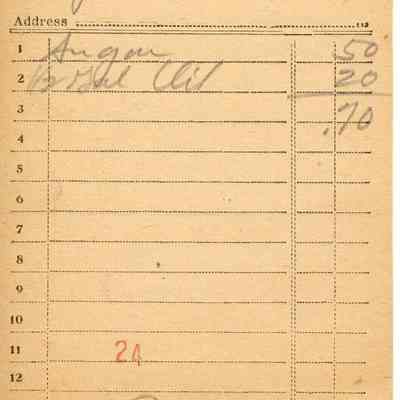 Address
1 Sugar 50
2 1/2 Gal Oil 20
3 .70
4
5
6
7
8
9
10
11 24
12